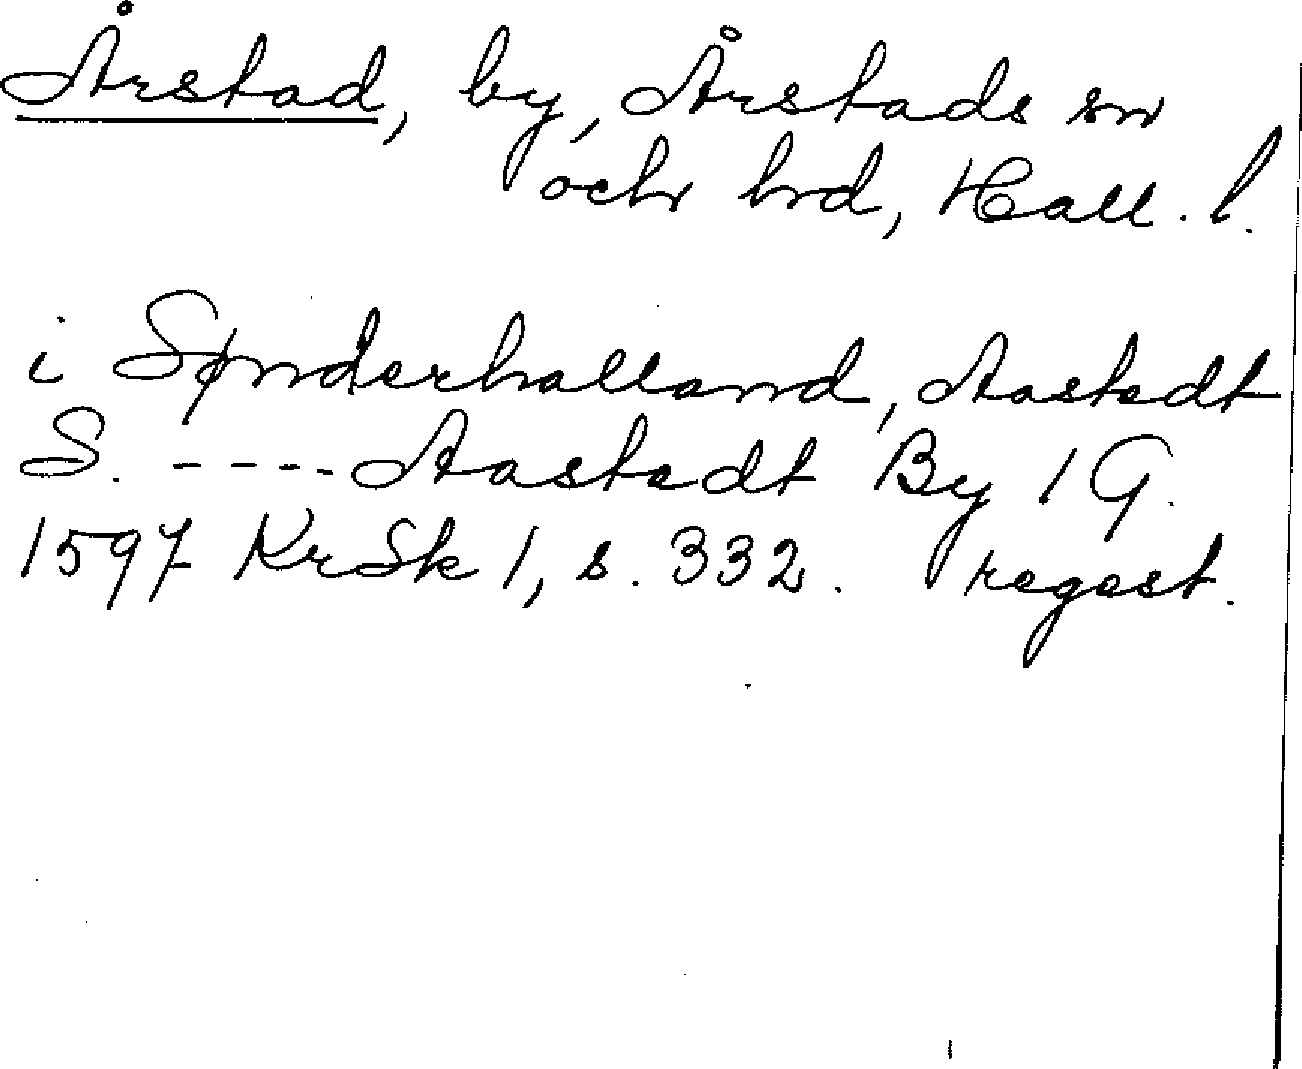 Årstad, by, Årstads sn
och hd, Hall. l.
i Sønderhalland, Aastedt
S. ---- Aastedt By 1 G.
1597 KrSk 1, s. 332. regest.